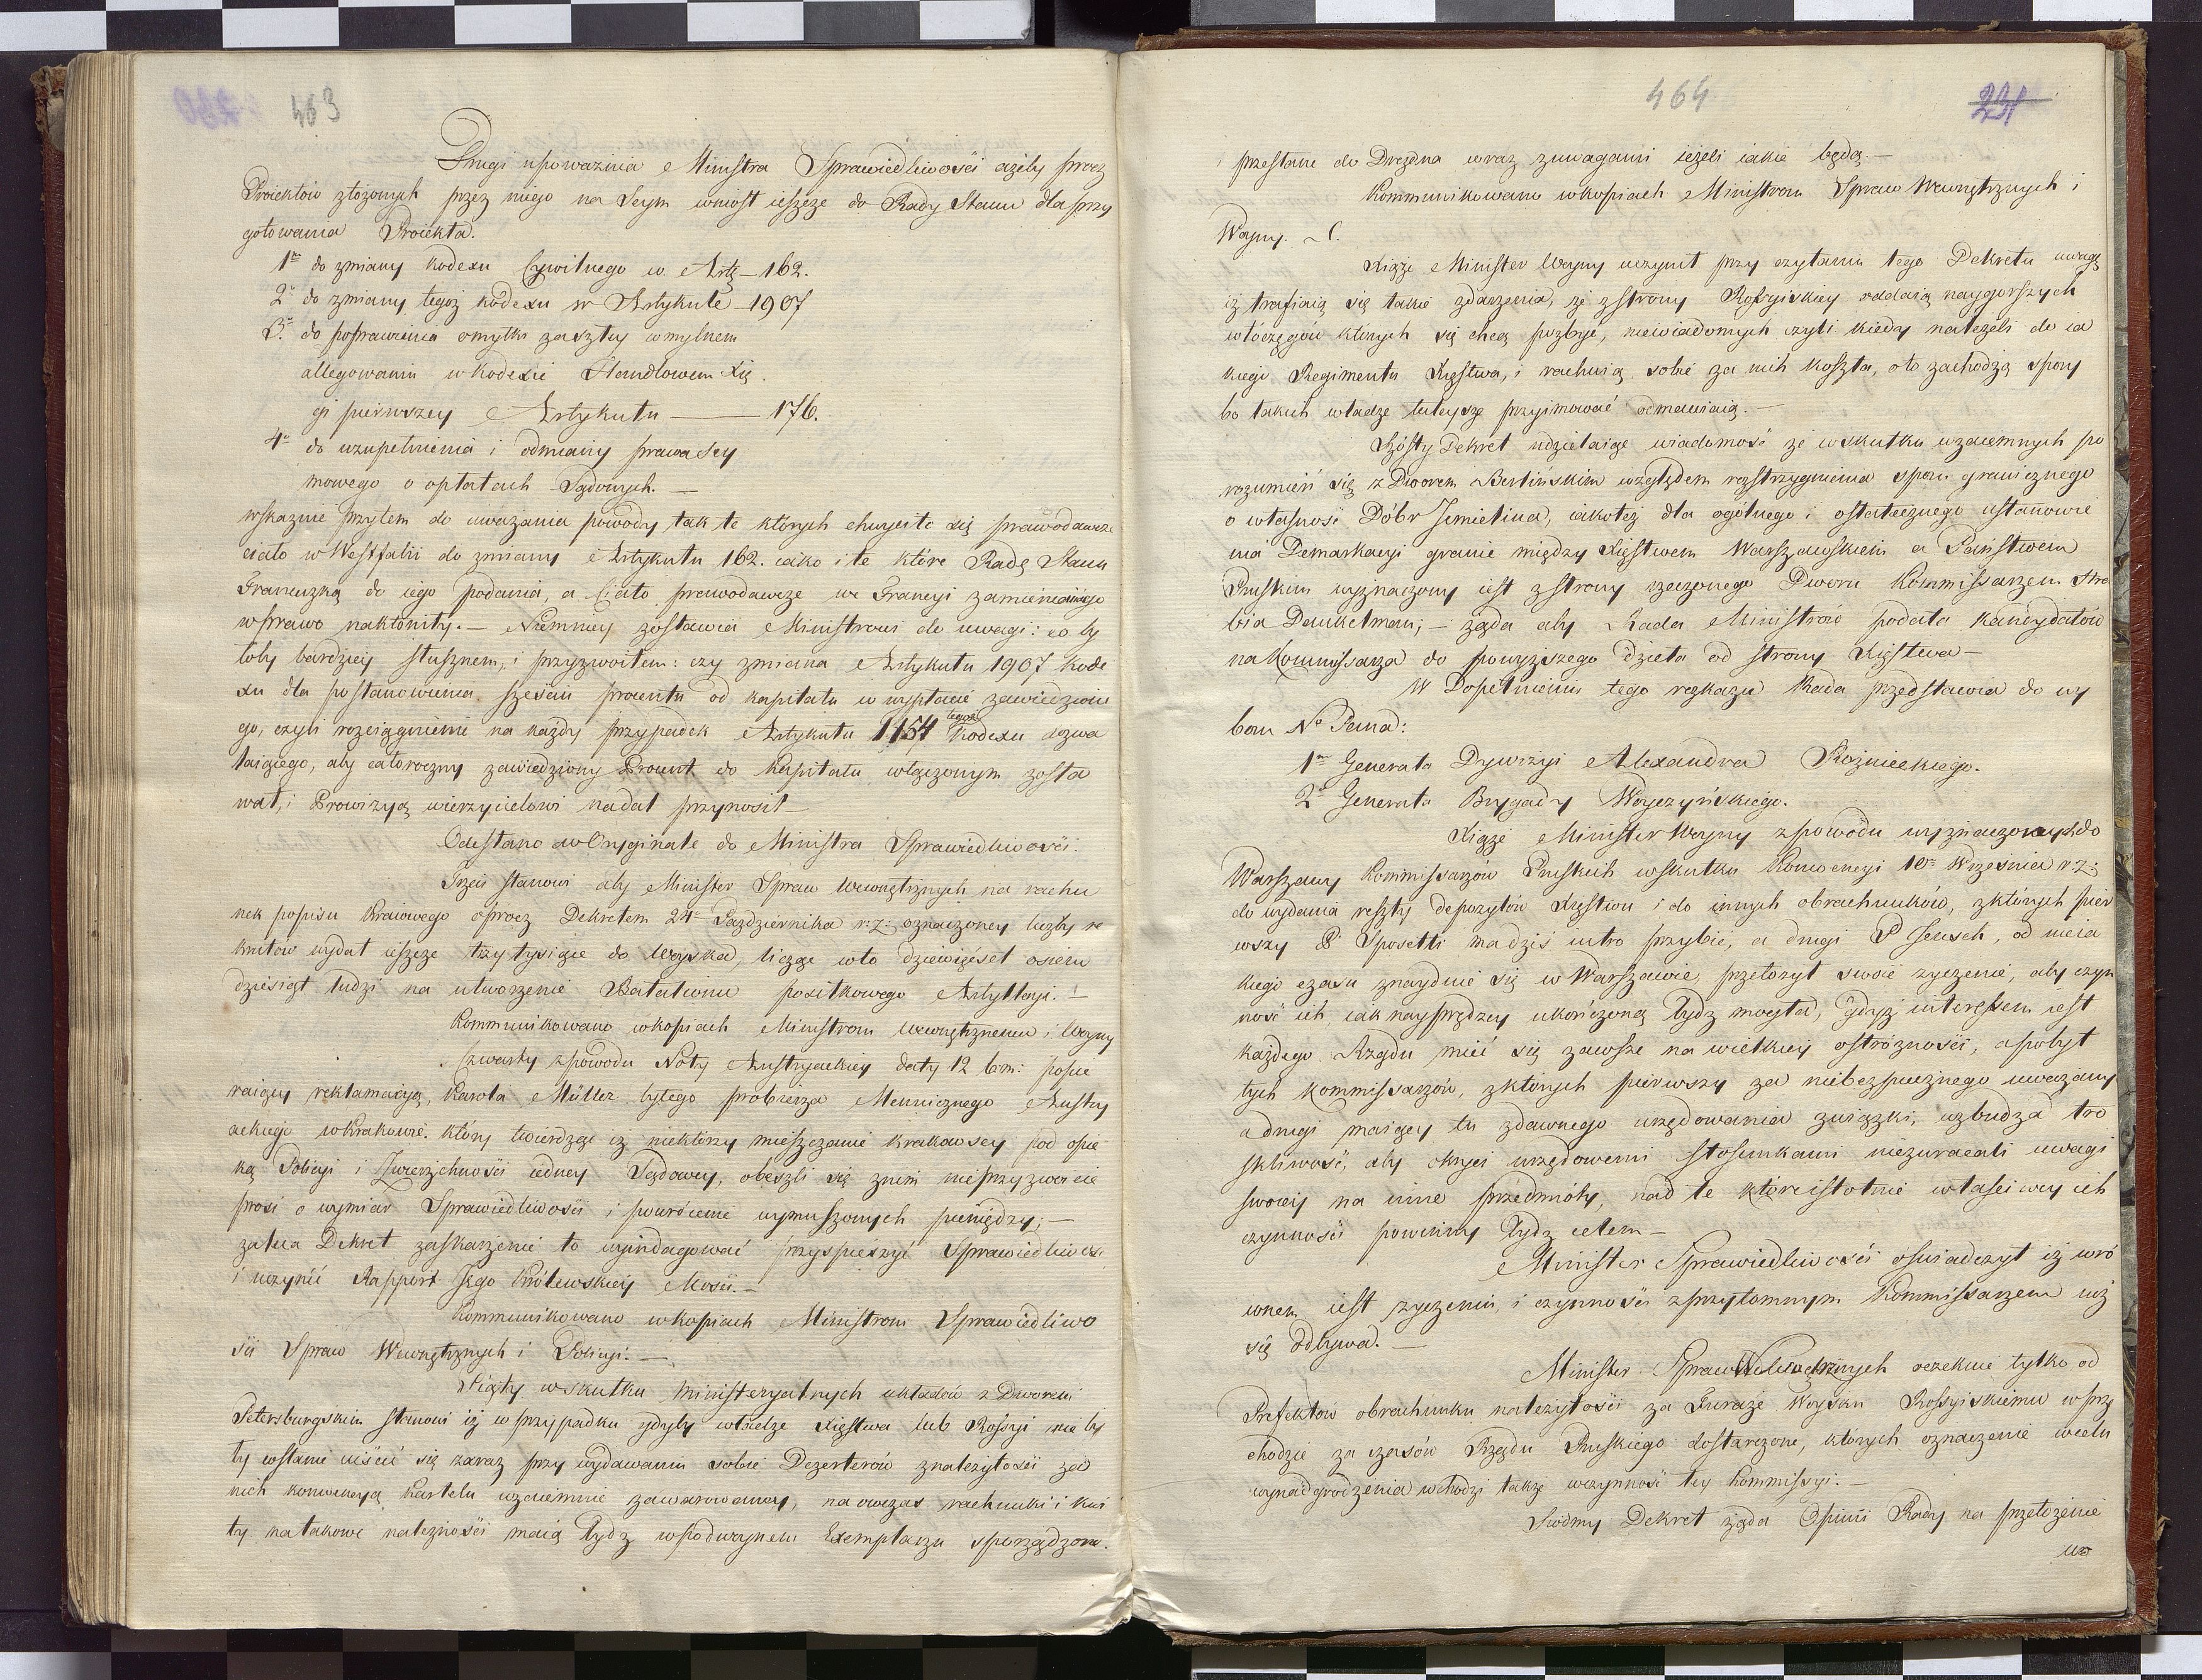 463
Drugi upoważnia Ministra Sprawiedliwości ażeby procz
Proiektów złożonych przez niego na Seym wniosł ieszcze do Rady Stanu dla przy
gotowania Proiekta.
1° do zmiany Kodexu Cywilnego w Artę – 162.
2° do zmiany tegoż kodexu w Artykule – 1907
3° do poprawienia omyłki zaszłey w mylnem
allegowaniu w Kodexie Handlowem Xię
gi pierwszey Artykułu — 176.
4° do uzupełnienia i odmiany prawa Sey
mowego o opłatach Sądowych. —
wskazuie przytem do uważania powody tak te których chwyciło się prawodawcze
ciało w Westfalii do zmiany Artykułu 162. iako i te które Radę Stanu
Francuzką do iego podania, a Ciało prawodawcze we Francyi zamienienia go
w prawo nakłoniły. – Niemniey zostawia Ministrowi do uwagi: co by
łoby bardziey słusznem, i przyzwoitem: czy zmiana Artykułu 1907 Kode
xu dla postanowienia sześciu procentu od kapitału w wypłacie zawiedzione
go, czyli rozciągnienie na każdy przypadek Artykułu 1154 tegoż Kodexu dozwa
laiącego, aby całoroczny zawiedziony Procent do Kapitału włączonym zosta
wał, i Prowizyą wierzycielowi nadal przynosił —
Odesłano w Oryginale do Ministra Sprawiedliwości.
Trzeci stanowi aby Minister Spraw Wewnętrznych na rachu
nek popisu Kraiowego oprocz Dekretem 24° Października r: z: oznaczoney liczby re
krutów wydał ieszcze trzy tysiące do Woyska, licząc w to dziewięćset osiem
dziesiąt ludzi na utworzenie Batalionu positkowego Artylleryi. –
Kommunikowano w kopiach Ministrom Wewnętrznemu i Woyny
Czwarty z powodu Noty Austryackiey daty 12 b: m: popie
raiącey reklamacyą, Karola Müller byłego probierza Menniczego Austry
ackiego w Krakowie, który twierdząc iż niektórzy mieszczanie krakowscy pod opie
ką Policyi i Zwierzchności iedney Sądowey, obeszli się z nim nieprzyzwoicie
prosi o wymiar Sprawiedliwości i powrócenie wymuszonych pieniędzy; —
zaleca Dekret zaskarżenie to wyindagować przyspieszyć Sprawiedliwość
i uczynić Rapport Jego Królewskiey Mości. —
Kommunikowano w kopiach Ministrom Sprawiedliwo
ści Spraw Wewnętrznych i Policyi. —
Piąty w skutku Ministeryalnych układów z Dworem
Petersburgskim stanowi iż w przypadku gdyby władze Xięstwa lub Rossyi nie by
ły wstanie uiścić się zaraz przy wydawaniu sobie Dezerterów z należytości za
nich konwencyą Kartelu wzaiemnie zawarowaney, na owczas rachunki i kwi
ty na takowe należności maią bydź w podwoynem Exemplarzu sporządzone.
464
231
przesłane do Drezdna wraz z uwagami ieżeli iakie będą. —
Kommunikowano w kopiach Ministrom Spraw Wewnętrznych i
Woyny.
Xiąże Minister Woyny uczynił przy czytaniu tego Dekretu uwagę
iż trafiaią się takie zdarzenia, że z strony Rossyiskiey oddaią naygorszych
włóczęgów których się chcą pozbyć, niewiadomych czyli kiedy należeli do ia
kiego Regimentu Xięstwa, i rachuią sobie za nich koszta, o to zachodzą spory
bo takich władze tuteysze przyimować odmawiaią. —
Szósty Dekret udzielaiąc wiadomość że w skutku wzaiemnych po
rozumień się z Dworem Berlińskim względem rozstrzygnienia sporu granicznego
o własność Dóbr Jemielina, iakoteż dla ogólnego i ostatecznego ustanowie
nia Demarkacyi granic między Xięstwem Warszawskiem a Państwem
Pruskim wyznaczony iest z strony rzeczonego Dworu Kommissarzem Hra
bia Dankelman; – żąda aby Rada Ministrów podała kandydatów
na Kommissarza do powyższego dzieła od strony Xięstwa —
W Dopełnieniu tego rozkazu Rada przedstawia do wy
boru N° Pana:
1° Generała Dywizyi Alexandra Rożnieckiego.
2° Generała Brygady Woyczyńskiego.
Xiąże Minister Woyny z powodu wyznaczonych do
Warszawy Kommissarzów Pruskich w skutku Konwencyi 10° Września r: z:
do wydania reszty depozytów Xięstwu i do innych obrachunków, z których pier
wszy P. Sposetti ma dziś iutro przybić, a drugi P Jensch, od nieia
kiego czasu znayduie się w Warszawie, przełożył swoie życzenie, aby czyn
ność ich, iak nayprędzey ukończoną bydź mogła, gdyż interessem iest
każdego Rządu mieć się zawsze na wielkiey ostrożności, a pobyt
tych kommissarzów, z których pierwszy za niebezpiecznego uważany
a drugi maiący tu z dawnego urzędowania związki, wzbudza tro
skliwość, aby okryci urzędowemi stosunkami niezwracali uwagi
swoiey na inne przedmioty, nad te które istotnie właściwey ich
czynności powinny bydź celem —
Minister Sprawiedliwości oświadczył iż wró
wnem iest życzeniu, i czynności z przytomnym Kommissarzem iuż
się odbywa. —
Minister Spraw Wewnętrznych oczekuie tylko od
Prefektów obrachunku należytości za Furaże Woysku Rossyiskiemu w prze
chodzie za czasów Rządu Pruskiego dostarczone, których oznaczenie wcelu
wynadgrodzenia wchodzi także wczynność tey Kommissyi. —
Siodmy Dekret żąda Opinii Rady na przełożenie